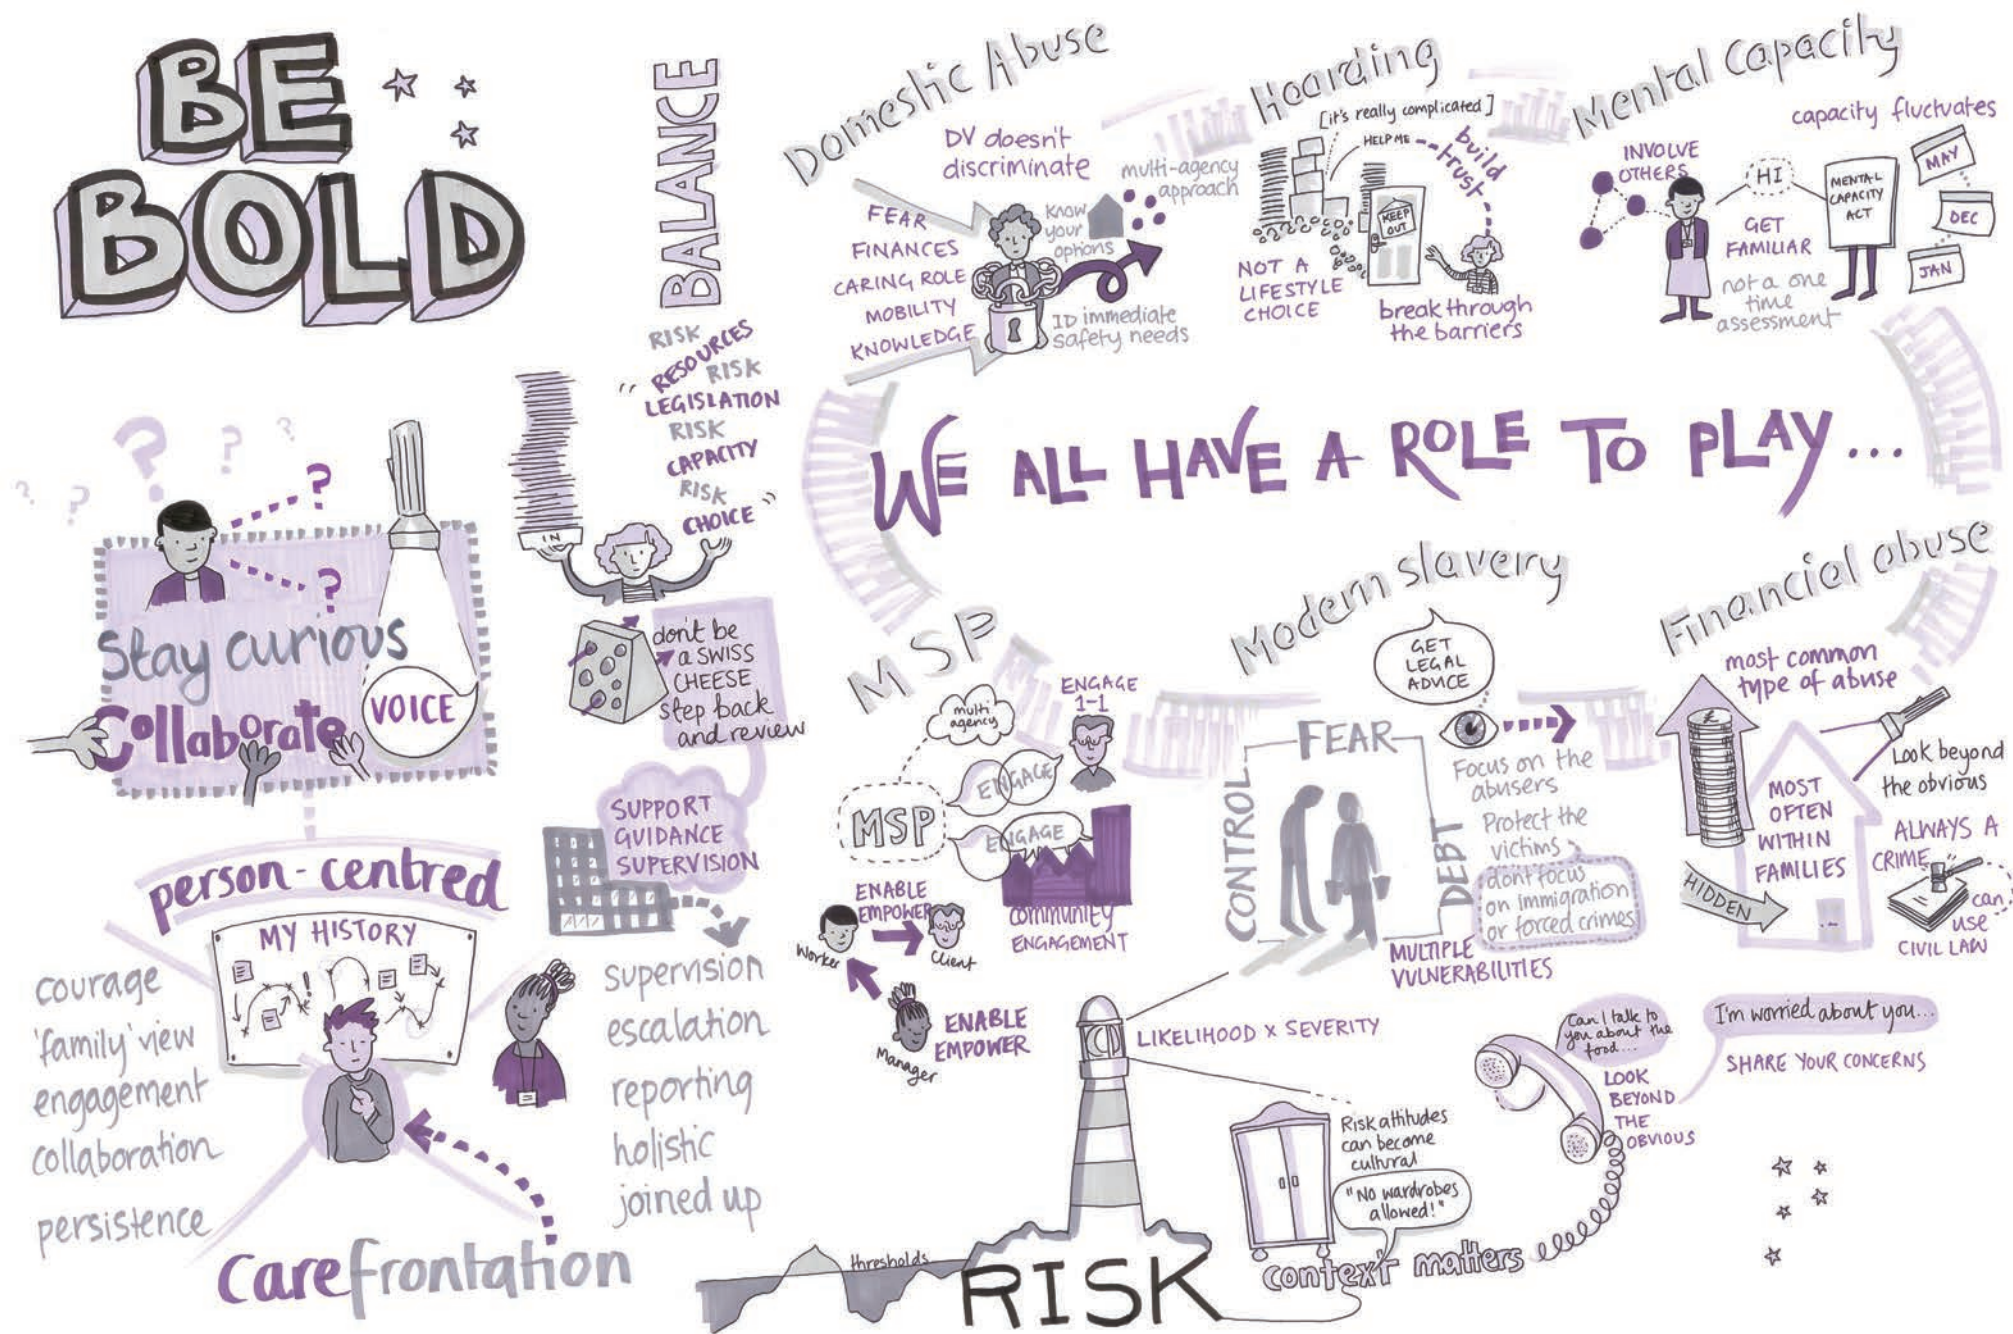 BE
BOLD
BALANCE
RISK
"RESOURCES
RISK
LEGISLATION
RISK
CAPACITY
RISK
CHOICE"
IN
don't be
a SWISS
CHEESE
step back
and review
SUPPORT
GUIDANCE
SUPERVISION
supervision
escalation
reporting
holistic
joined up
? ? ? ? ?
?
?
Stay curious
Collaborate
VOICE
person-centred
MY HISTORY
!
courage
'family' view
engagement
collaboration
persistence
carefrontation
Domestic Abuse
DV doesn't
discriminate
FEAR
FINANCES
CARING ROLE
MOBILITY
KNOWLEDGE
multi-agency
approach
KNOW
your
options
ID immediate
safety needs
Hoarding
[it's really complicated]
HELP ME
build
trust
KEEP
OUT
NOT A
LIFESTYLE
CHOICE
break through
the barriers
Mental Capacity
capacity fluctuates
INVOLVE
OTHERS
HI
MENTAL
CAPACITY
ACT
GET
FAMILIAR
not a one
time
assessment
MAY
DEC
JAN
WE ALL HAVE A ROLE TO PLAY...
MSP
multi
agency
ENGAGE
1-1
ENGAGE
MSP
ENGAGE
community
ENGAGEMENT
ENABLE
EMPOWER
Worker
Client
Manager
ENABLE
EMPOWER
Modern slavery
GET
LEGAL
ADVICE
FEAR
CONTROL
DEBT
Focus on the
abusers
Protect the
victims
dont focus
on immigration
or forced crimes
MULTIPLE
VULNERABILITIES
Financial abuse
most common
type of abuse
£
Look beyond
the obvious
MOST
OFTEN
WITHIN
FAMILIES
HIDDEN
ALWAYS A
CRIME
can
use
CIVIL LAW
LIKELIHOOD X SEVERITY
Risk attitudes
can become
cultural
"No wardrobes
allowed!"
context matters
thresholds
RISK
Can I talk to
you about the
food...
LOOK
BEYOND
THE
OBVIOUS
I'm worried about you...
SHARE YOUR CONCERNS